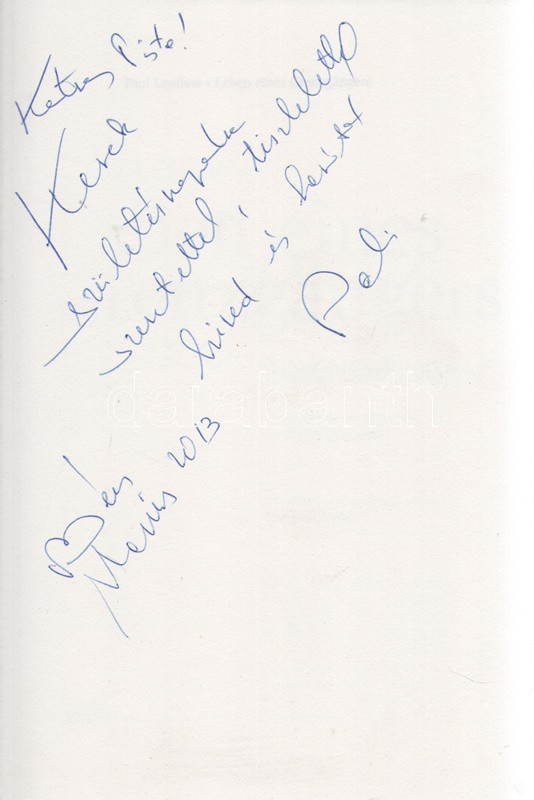 Pista!
Kerek
születésnapodra
szeretettel, tisztelettel
híved és barátod
Pali
Bécs
2013
darabanth